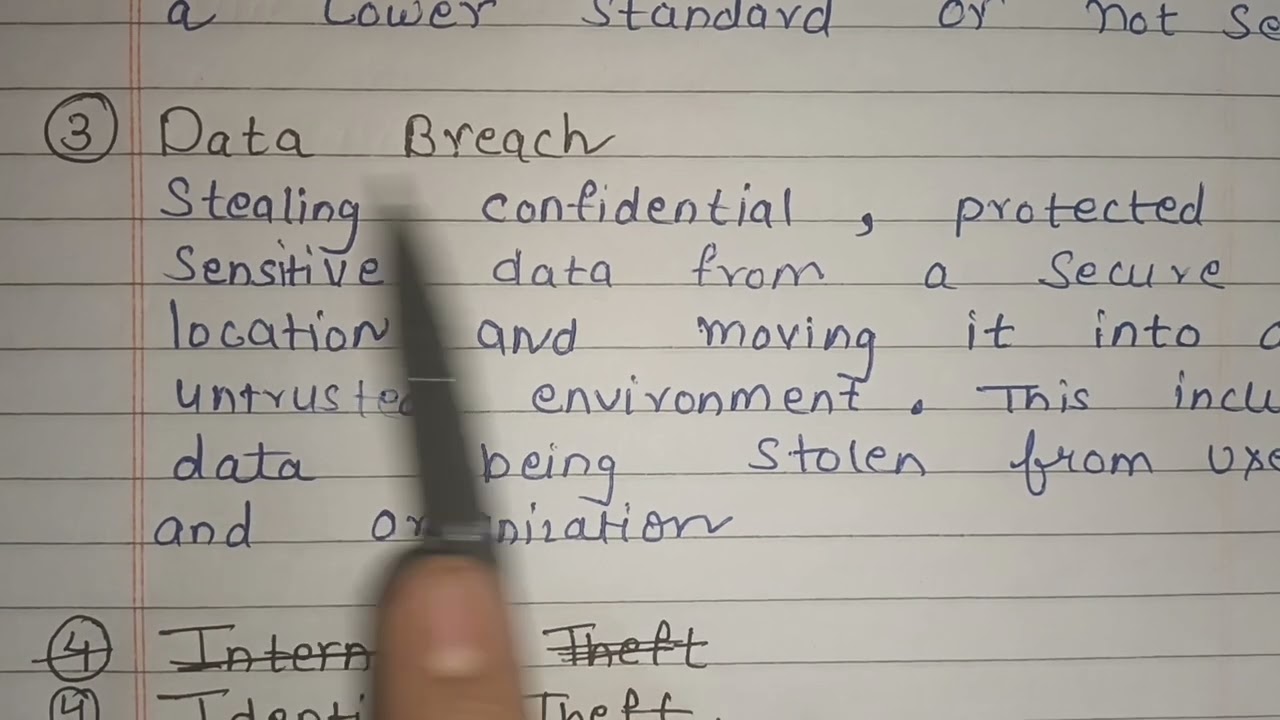 a Lower Standard or not se
③ Data Breach
Stealing confidential , protected
Sensitive data from a Secure
location and moving it into
untrusted environment. This inclu
data being stolen from
and
④ Theft
④ Theft.